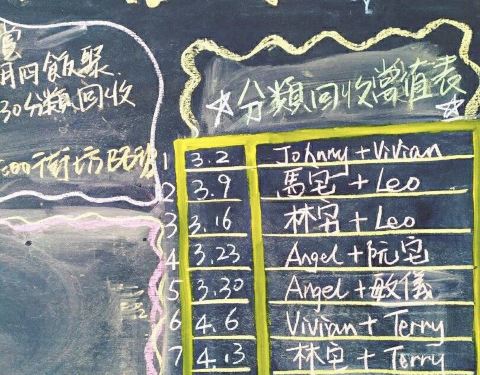 賞
月四飯聚
30分類回收
:00街坊
☆分類回收當值表☆
1 3.2 Johnny + Vivian
2 3.9 馬宅 + Leo
3 3.16 林宅 + Leo
4 3.23 Angel + 阮宅
5 3.30 Angel + 敏儀
6 4.6 Vivian + Terry
7 4.13 林宅 + Terry